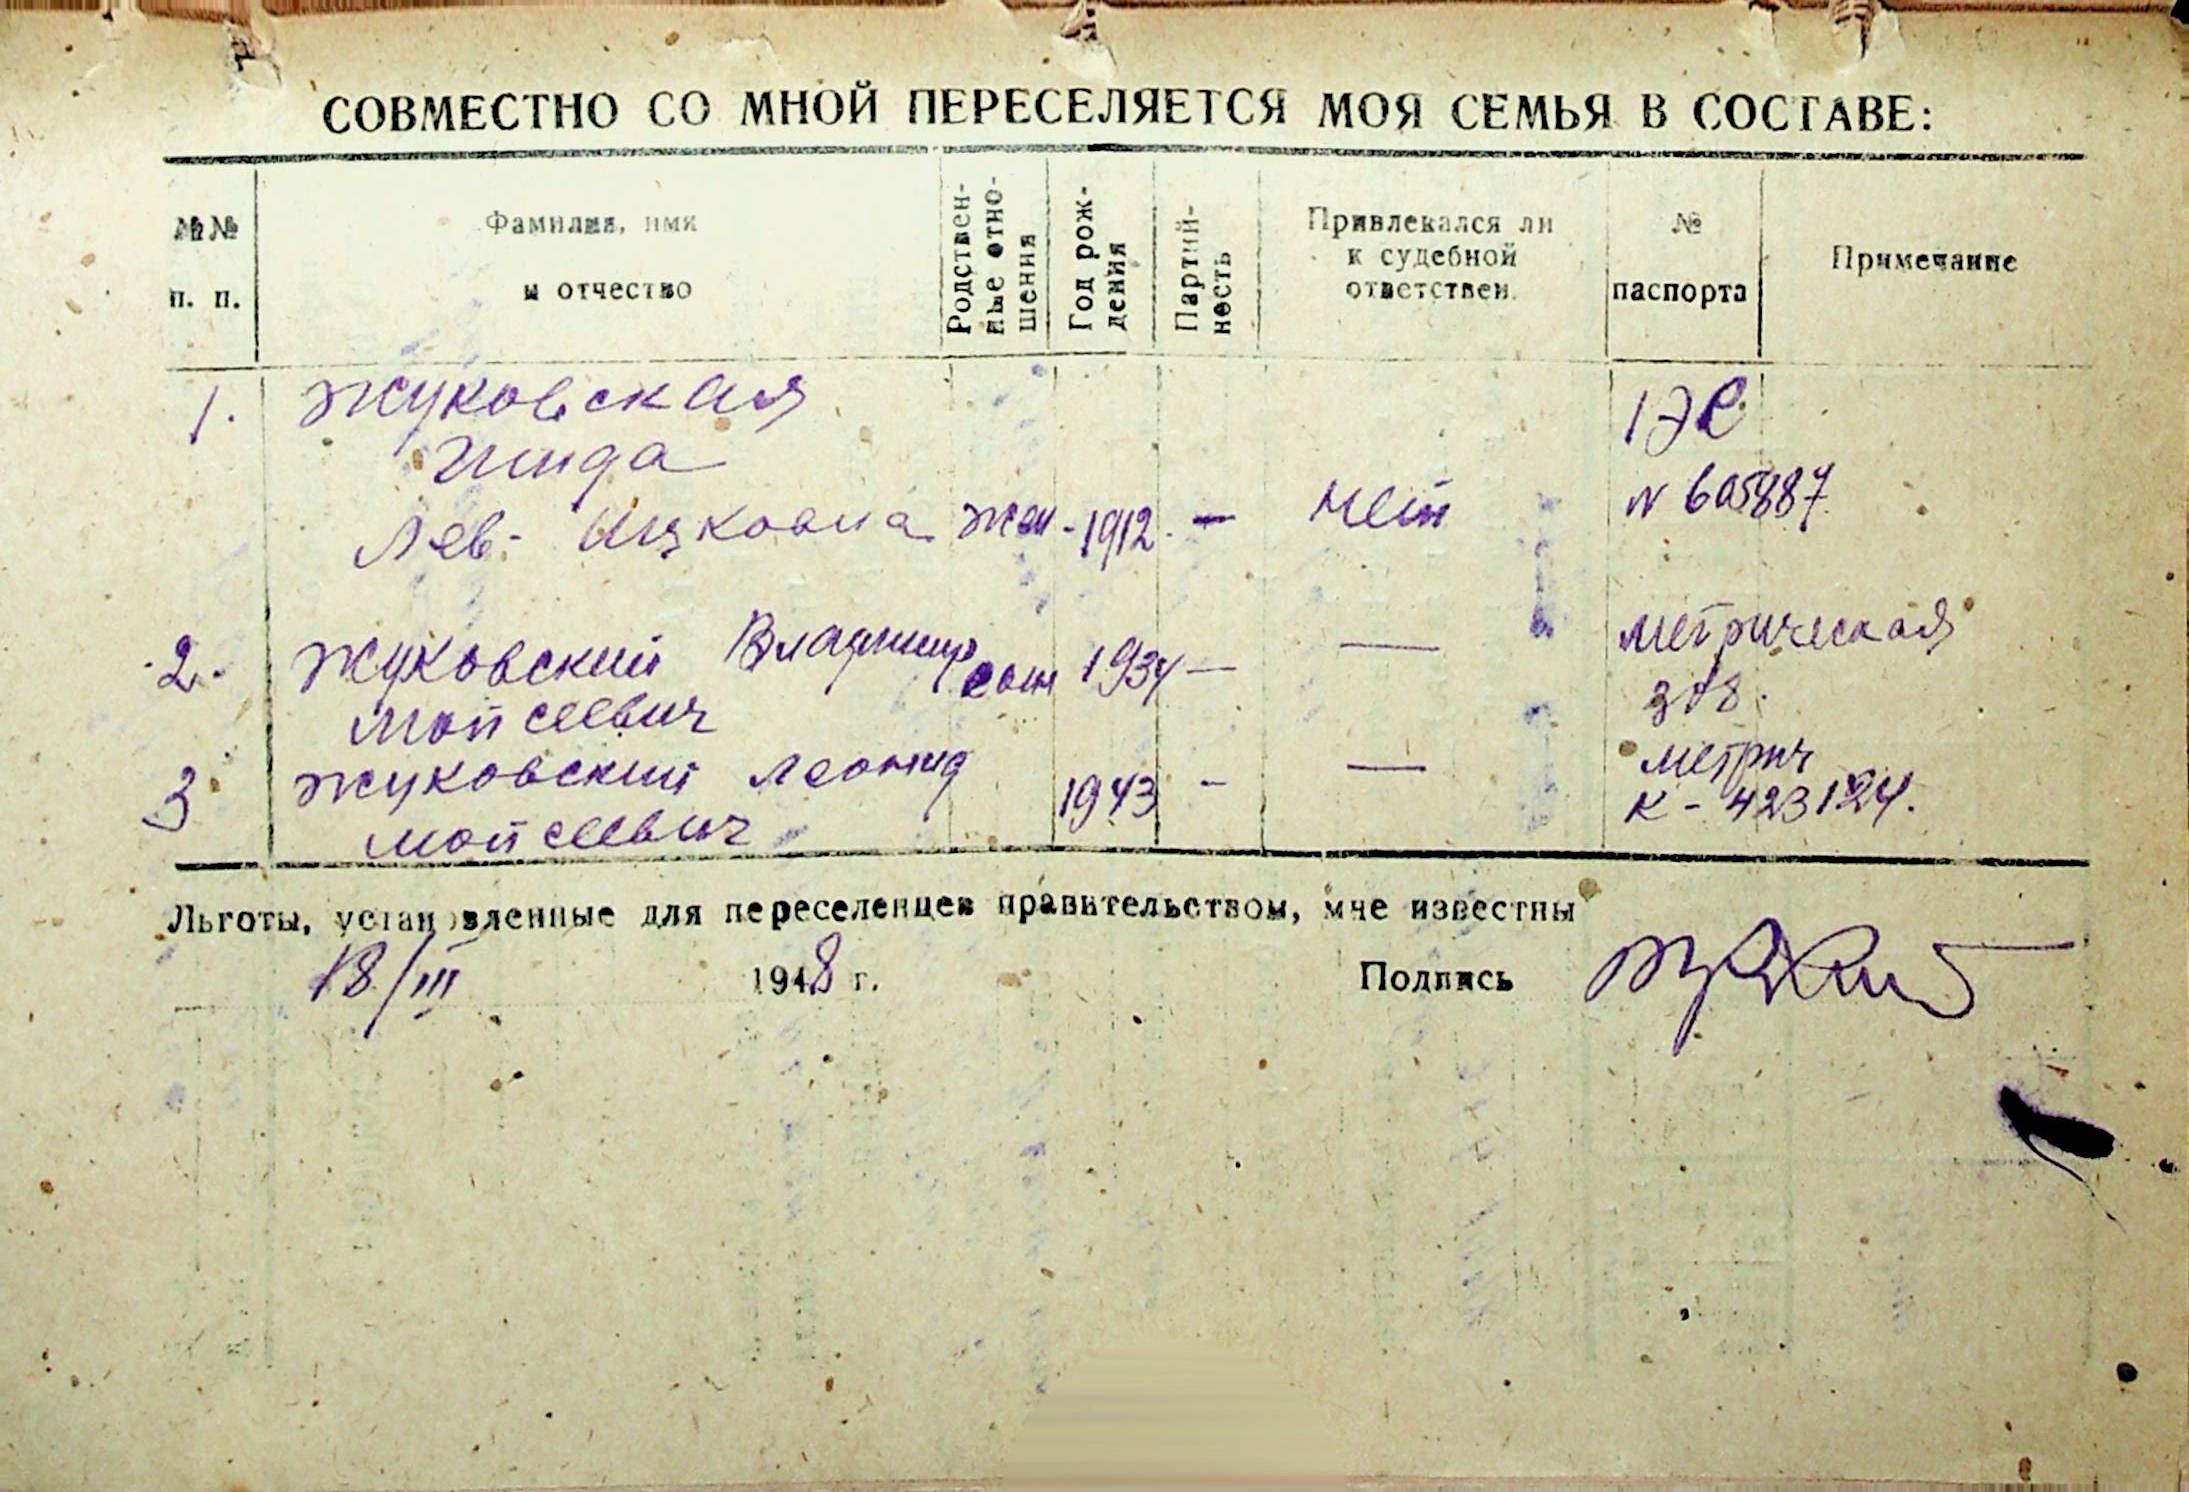 СОВМЕСТНО СО МНОЙ ПЕРЕСЕЛЯЕТСЯ МОЯ СЕМЬЯ В СОСТАВЕ:
№№ п. п.
Фамилия, имя и отчество
Родствен-ные отно-шения
Год рож-дения
Партий-ность
Привлекался ли к судебной ответствен.
№ паспорта
Примечание
1. Жуковская 1ЭС
Гинда
Лев- Ицковна жен - 1912. — нет N 605887
2. Жуковский Владимир сын 1934 — — метрическая
Мойсеевич 318.
3 Жуковский Леонид 1943 - — метрич
Мойсеевич К - 423124.
Льготы, установленные для переселенцев правительством, мне известны
18/III 1948 г. Подпись